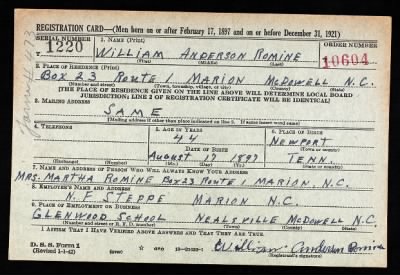 REGISTRATION CARD—(Men born on or after February 17, 1897 and on or before December 31, 1921)
SERIAL NUMBER 1. NAME (Print) ORDER NUMBER
1220 WILLIAM ANDERSON ROMINE 10604
(First) (Middle) (Last)
2. PLACE OF RESIDENCE (Print)
BOX 23 ROUTE 1 MARION McDOWELL N.C.
(Number and street) (Town, township, village, or city) (County) (State)
[THE PLACE OF RESIDENCE GIVEN ON THE LINE ABOVE WILL DETERMINE LOCAL BOARD
JURISDICTION; LINE 2 OF REGISTRATION CERTIFICATE WILL BE IDENTICAL]
3. MAILING ADDRESS
SAME
[Mailing address if other than place indicated on line 2. If same insert word same]
4. TELEPHONE 5. AGE IN YEARS 6. PLACE OF BIRTH
44 NEWPORT
DATE OF BIRTH (Town or county)
AUGUST 17 1897 TENN.
(Exchange) (Number) (Mo.) (Day) (Yr.) (State or country)
7. NAME AND ADDRESS OF PERSON WHO WILL ALWAYS KNOW YOUR ADDRESS
MRS. MARTHA ROMINE BOX 23 ROUTE 1 MARION N.C.
8. EMPLOYER'S NAME AND ADDRESS
N. F. STEPPE MARION N.C.
9. PLACE OF EMPLOYMENT OR BUSINESS
GLENWOOD SCHOOL NEALSVILLE McDOWELL N.C.
(Number and street or R. F. D. number) (Town) (County) (State)
I AFFIRM THAT I HAVE VERIFIED ABOVE ANSWERS AND THAT THEY ARE TRUE.
D. S. S. Form 1
(Revised 1-1-42) (over) 16—21630-1 William Anderson Romine
(Registrant's signature)